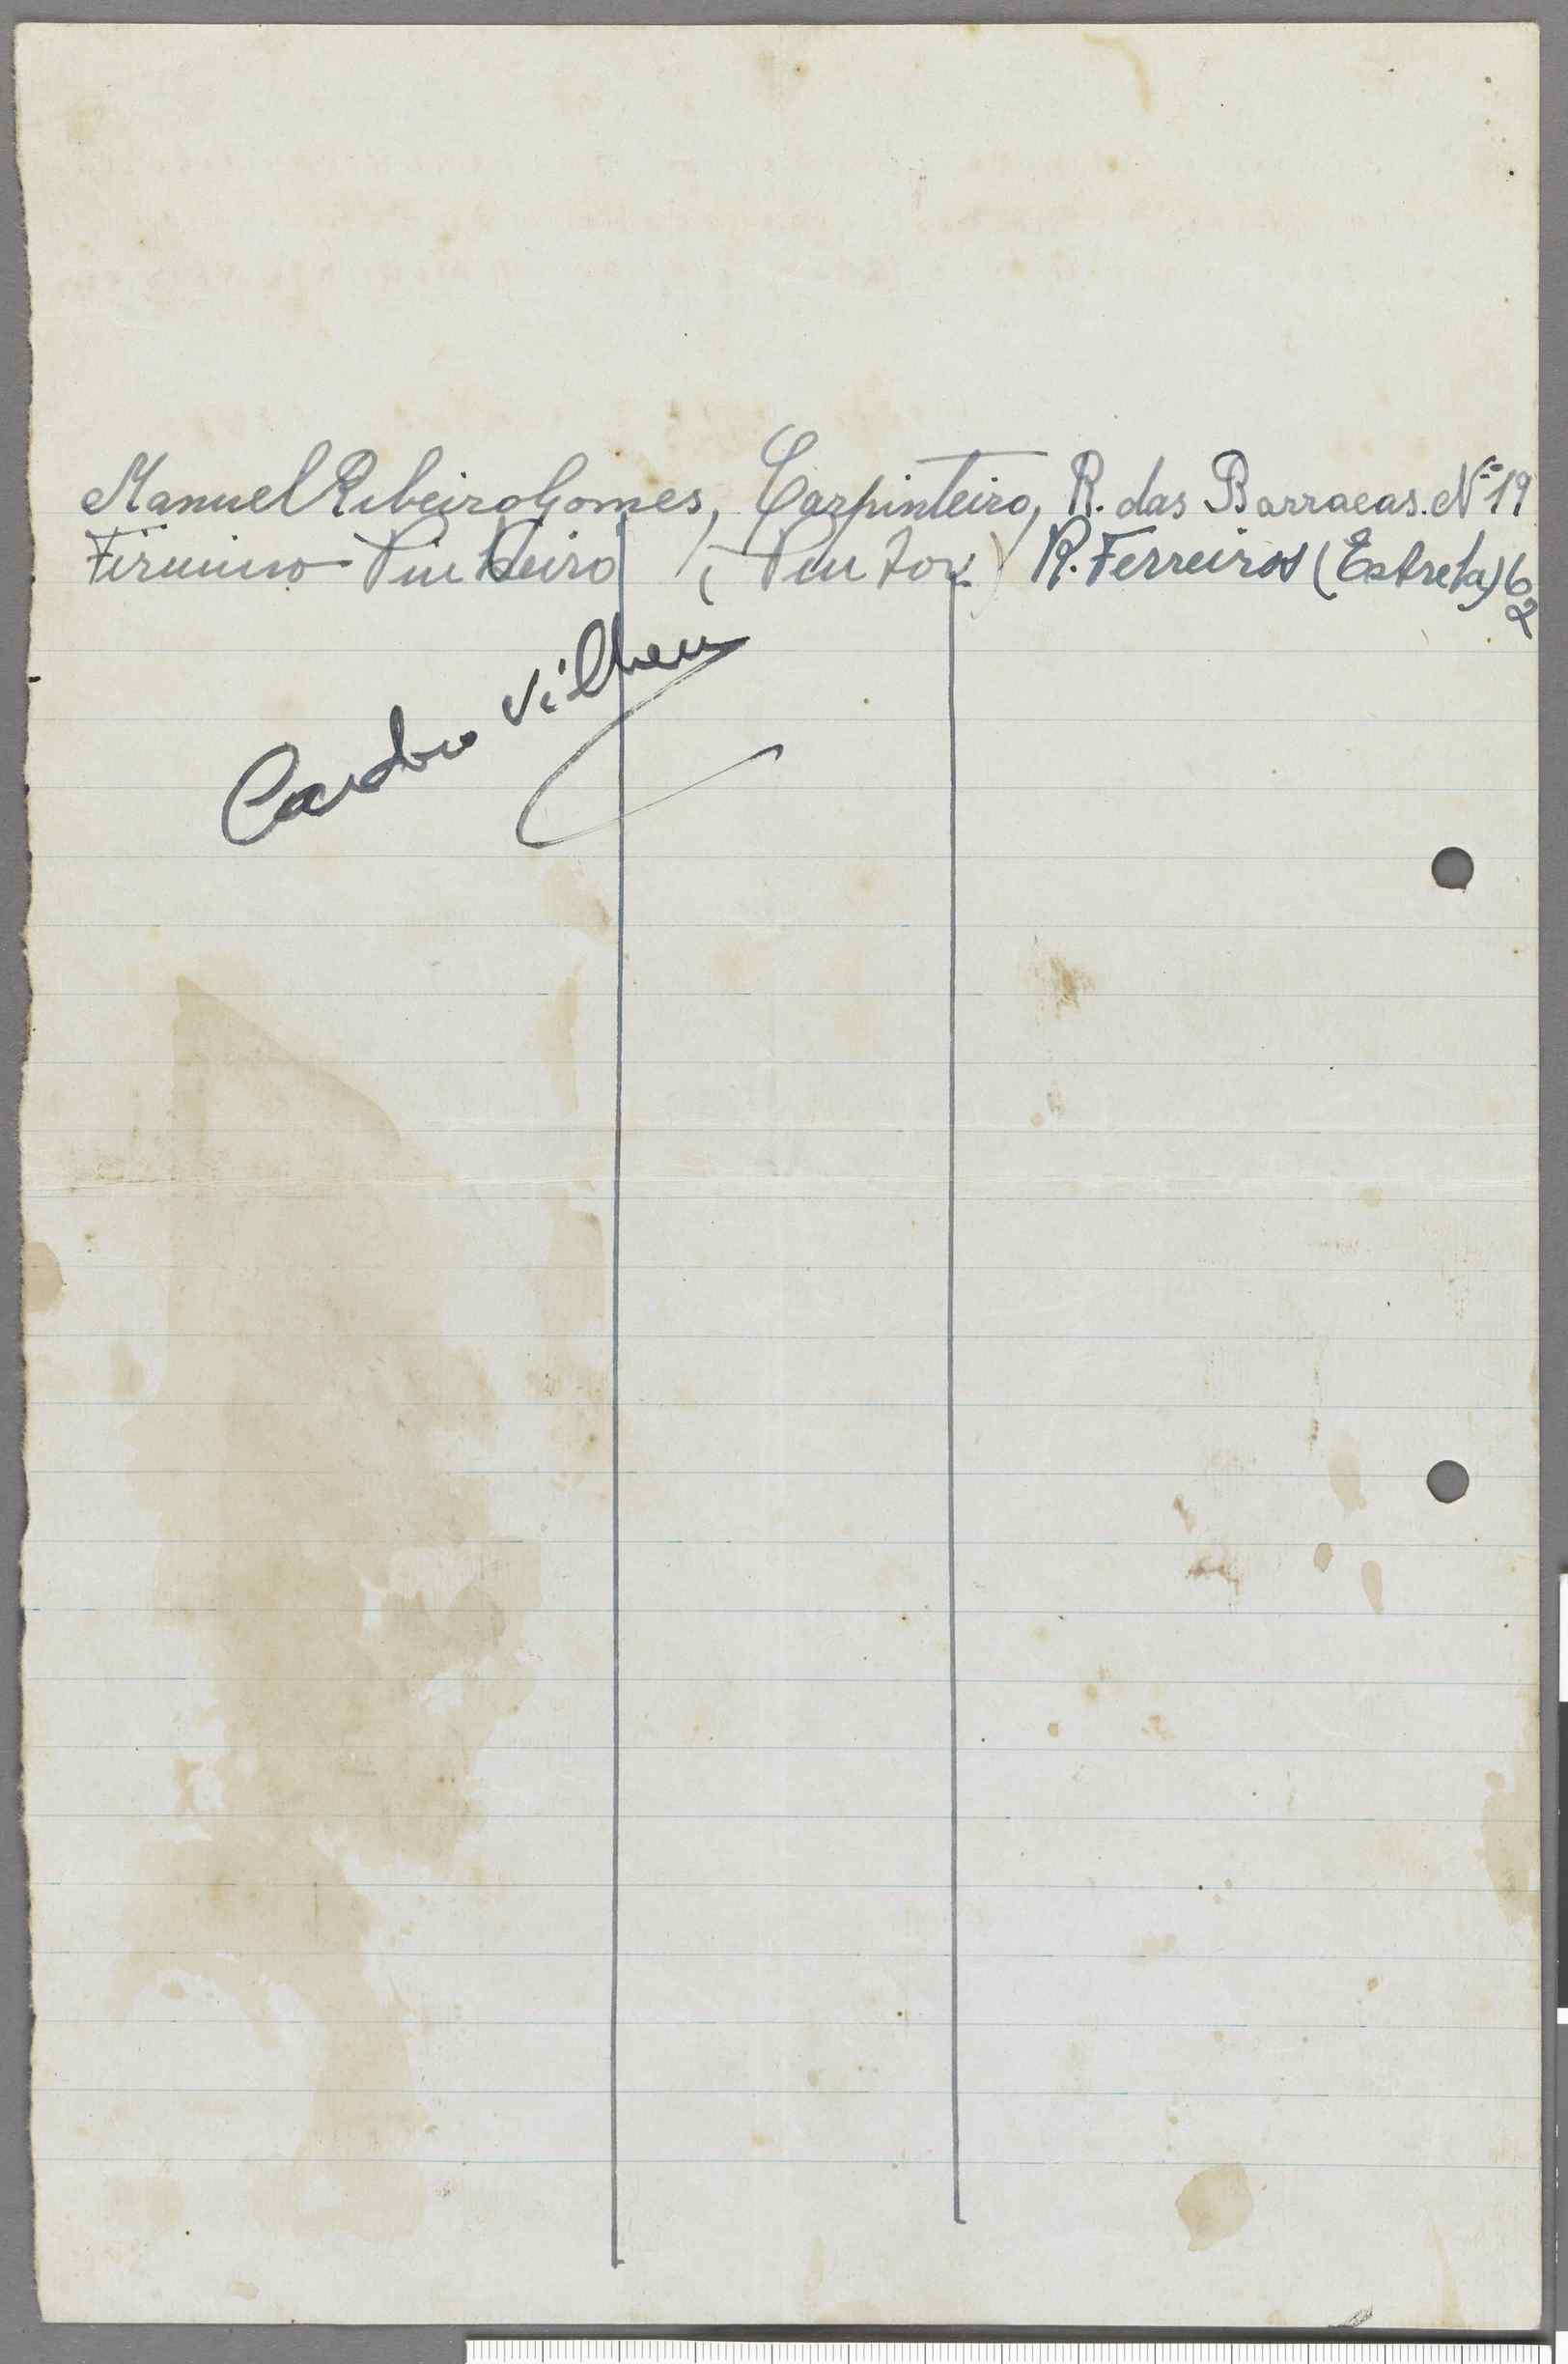 Manuel Ribeiro Gomes, Carpinteiro, R. das Barracas. Nº 19
Firmino Pinheiro (Pintor) R. Ferreiros (Estrela) 62
Cardoso Vilhena